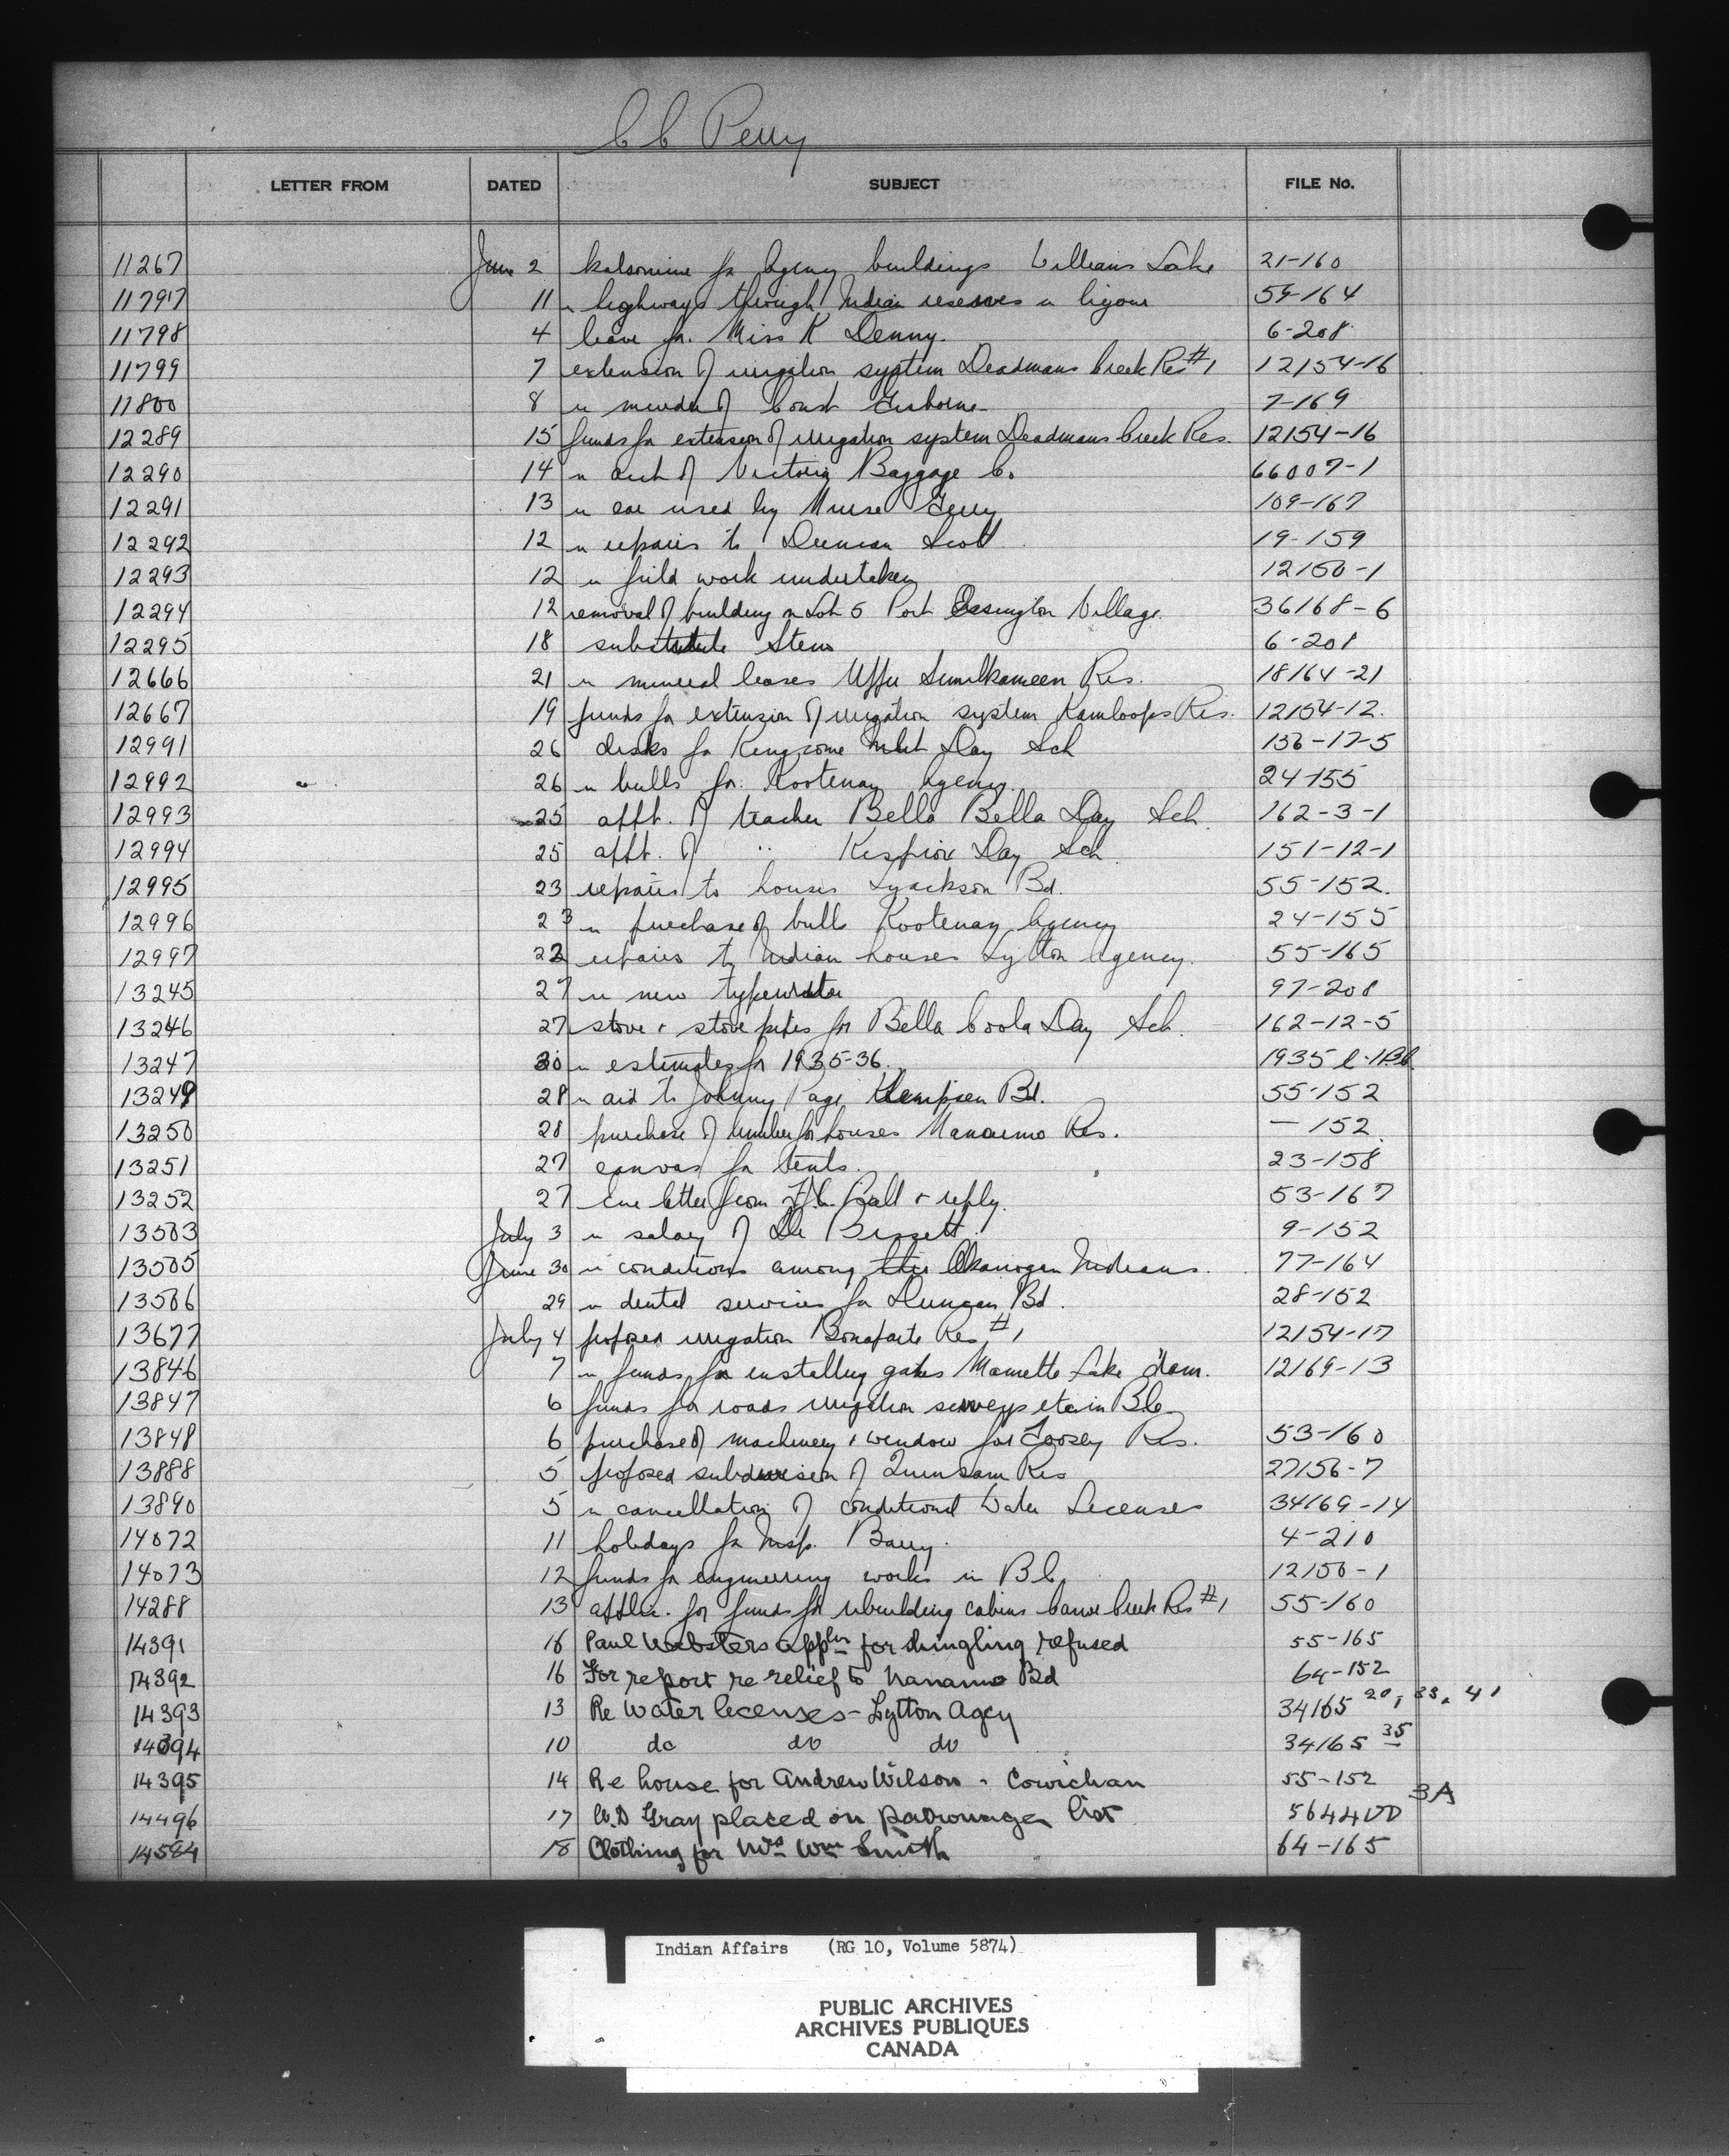 C C Perry
LETTER FROM DATED SUBJECT FILE No.
11267 June 2 kalsomine for Agency buildings Williams Lake 21-160
11797 11 re highways through Indian reserves re 59-164
11798 4 leave for Miss K Denny. 6-208
11799 7 extension of irrigation system Deadmans Creek Res #1 12154-16
11800 8 re murder of Const Gisborne 7-169
12289 15 funds for extension of irrigation system Deadmans Creek Res. 12154-16
12290 14 re acct of Victoria Baggage Co 66007-1
12291 13 re car used by Nurse 109-167
12292 12 re repairs to Duncan Scott 19-159
12293 12 re field work undertaken 12150-1
12294 12 removal of building on Lot 5 Port Essington Village. 36168-6
12295 18 substitute Steno 6-208
12666 21 re mineral leases Upper Similkameen Res. 18164-21
12667 19 funds for extension of irrigation system Kamloops Res. 12154-12.
12991 26 desks for Kingcome Inlet Day Sch 156-17-5
12992 26 re bulls for Kootenay Agency. 24-155
12993 25 appt. of teacher Bella Bella Day Sch. 162-3-1
12994 25 appt. of " Kispiox Day Sch. 151-12-1
12995 23 repairs to houses Lyackson Bd. 55-152.
12996 23 re purchase of bulls Kootenay Agency 24-155
12997 22 repairs to Indian houses Lytton Agency. 55-165
13245 27 re new typewriter 97-208
13246 27 stove & stove pipes for Bella Coola Day Sch. 162-12-5
13247 30 re estimates for 1935-36. 1935
13249 28 re aid to Johnny Page Bd. 55-152
13250 28 purchase of lumber for houses Nanaimo Res. — 152.
13251 27 canvas for tents. 23-158
13252 27 letter from Ball & reply. 53-167
13503 July 3 re salary of Dr Bissett. 9-152
13505 June 30 re conditions among the Okanogan Indians. 77-164
13506 29 re dental services for Duncan Bd. 28-152
13677 July 4 proposed irrigation Bonaparte Res #1 12154-17
13846 7 re funds for installing gates Mamette Lake dam. 12169-13
13847 6 funds for roads irrigation surveys etc in B.C.
13848 6 purchase of machinery & window for Toosey Res. 53-160
13888 5 proposed subdivision of Quinsam Res 27156-7
13890 5 re cancellation of conditional Water Licenses 34169-14
14072 11 holidays for Insp. Barry. 4-210
14073 12 funds for engineering works in B.C. 12150-1
14288 13 applic. for funds for rebuilding cabins Canoe Creek Res #1 55-160
14391 16 Paul Websters appln for shingling refused 55-165
14392 16 For report re relief to Nanaimo Bd 64-152
14393 13 Re Water licenses - Lytton Agcy 34165 20, 33, 41
14394 10 do do do 34165 35
14395 14 Re house for Andrew Wilson - Cowichan 55-152
14496 17 W.D Gray placed on patronage list 5644 3A
14584 18 Clothing for Mrs Wm Smith 64-165
Indian Affairs (RG 10, Volume 5874)
PUBLIC ARCHIVES
ARCHIVES PUBLIQUES
CANADA